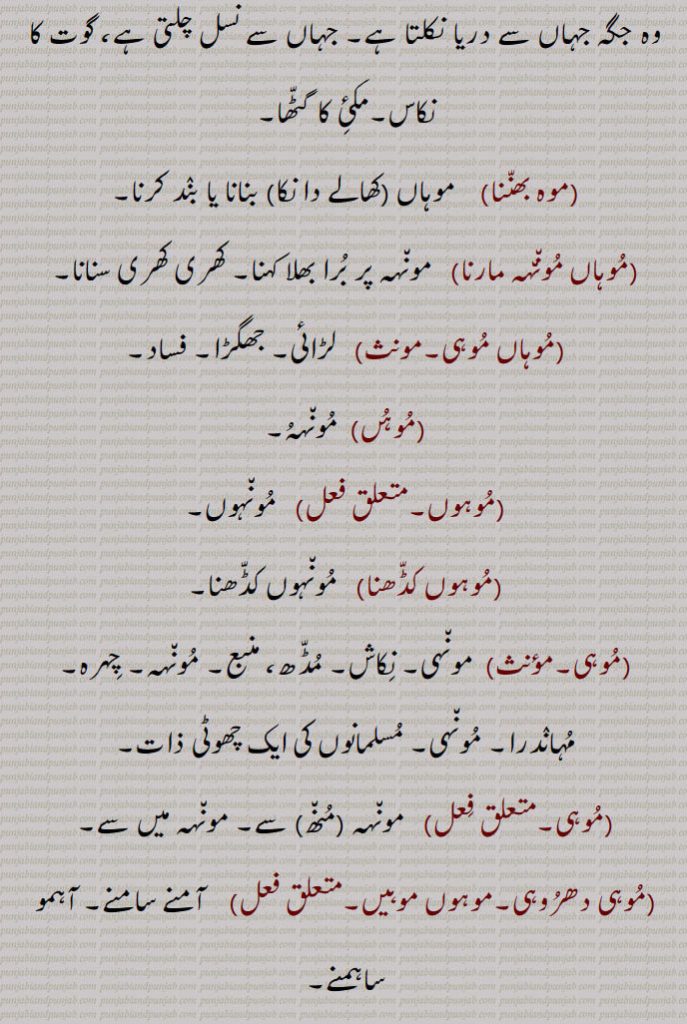 وہ جگہ جہاں سے دریا نکلتا ہے۔ جہاں سے نسل چلتی ہے، گوت کا
نکاس۔مکئِ کا گٹھّا۔
(موہ بھنّنا) موہاں (کھالے دا نکا) بنانا یا بند کرنا۔
(مُوہاں مُونّہہ مارنا) مونّہہ پر بُرا بھلا کہنا۔ کھری کھری سنانا۔
(مُوہاں مُوہی۔مونث) لڑائی۔ جھگڑا۔ فساد۔
(مُوہُں) مُونّہہُ۔
(مُوہوں۔متعلق فعل) مُونّہوں۔
(مُوہوں کڈّھنا) مُونّہوں کڈّھنا۔
(مُوہی۔مؤنث) مونّہی۔ نِکاش۔ مُڈّھ، منبع۔ مُونّہہ۔ چِہرہ۔
مُہاندرا۔ مُونّہی۔ مُسلمانوں کی ایک چھوٹی ذات۔
(مُوہی۔متعلق فِعل) مونّہہ (مُنھّ) سے۔ مونّہہ میں سے۔
(مُوہی دھرُوہی۔موہوں موہیں۔متعلق فعل) آمنے سامنے۔ آہمو
ساہمنے۔